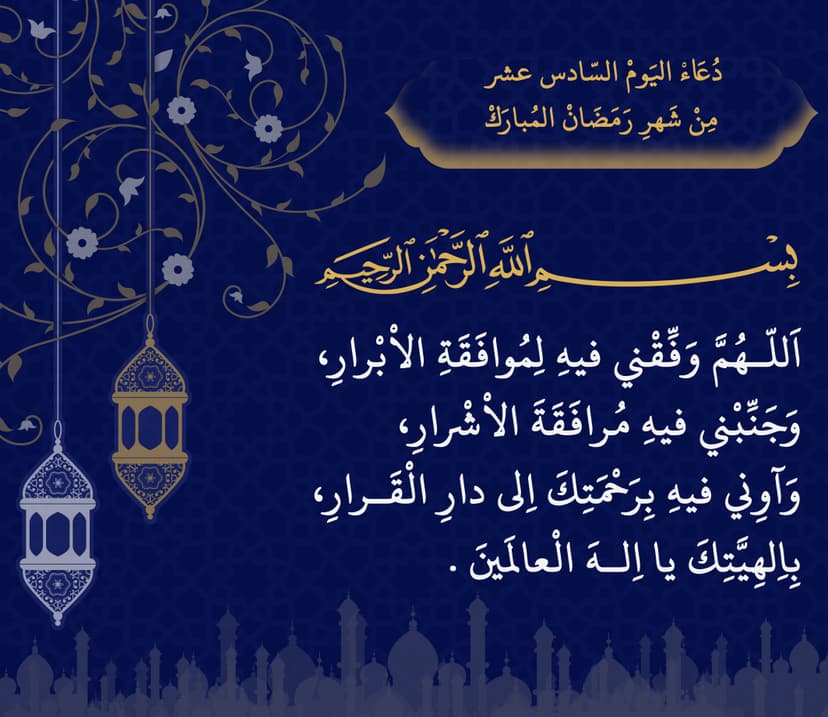 دُعَاءْ اليَومْ السّادس عشر
مِنْ شَهرِ رَمَضَانْ المُبارَكْ
بِسْمِ اللَّهِ الرَّحْمَٰنِ الرَّحِيمِ
اَللّـهُمَّ وَفِّقْني فيهِ لِمُوافَقَةِ الاْبْرارِ،
وَجَنِّبْني فيهِ مُرافَقَةَ الاْشْرارِ،
وَآوِني فيهِ بِرَحْمَتِكَ اِلى دارِ الْقَـرارِ،
بِاِلهِيَّتِكَ يا اِلـهَ الْعالَمَينَ .